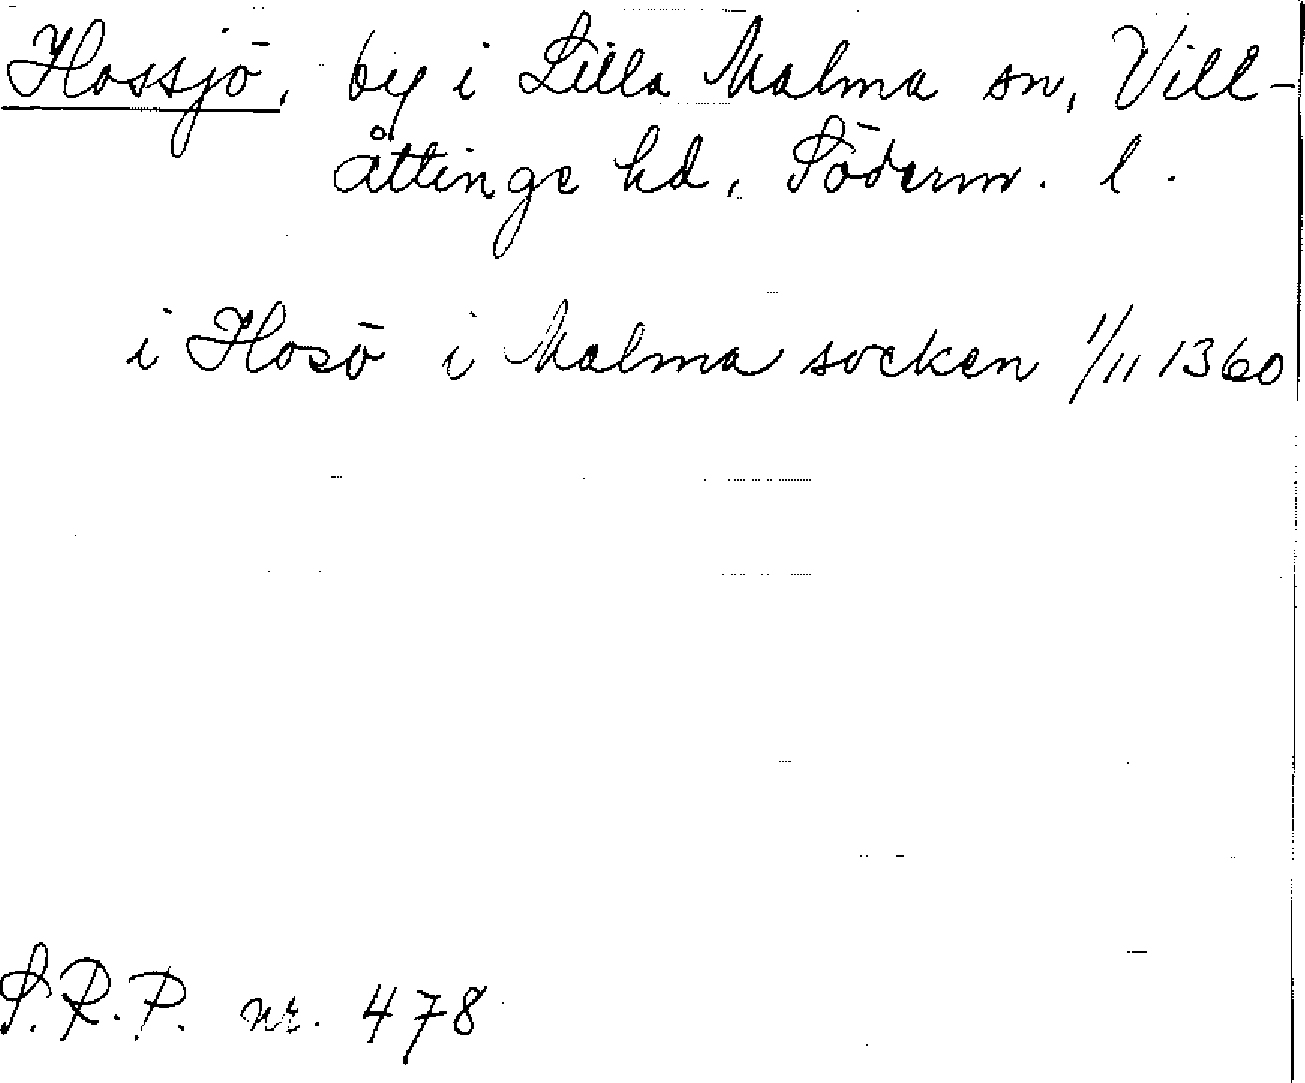 Hossjö, by i Lilla Malma sn, Vill-
åttinge hd, Söderm. l.
i Hosö i Malma socken 1/11 1360
S.R.P. nr. 478